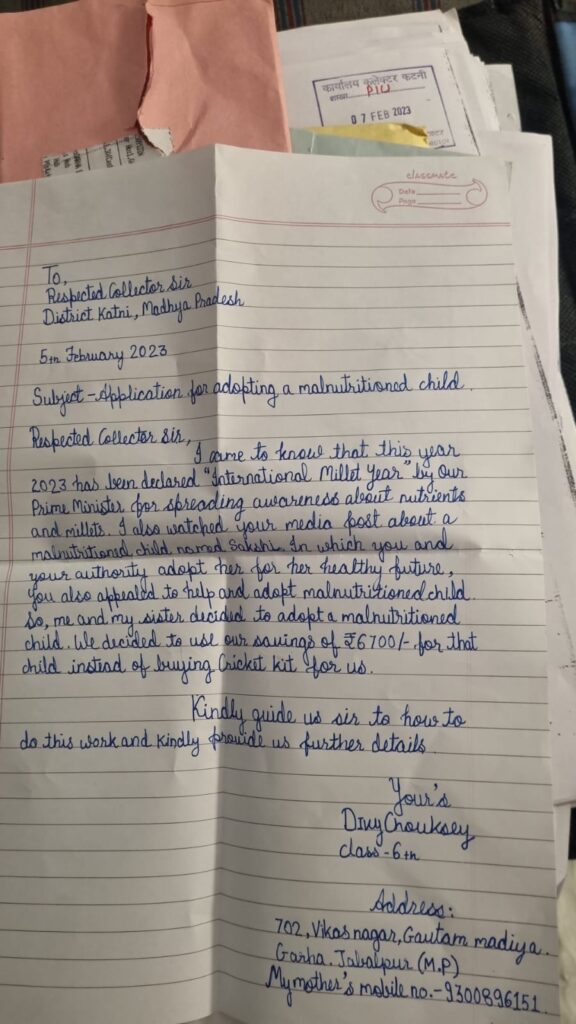 कार्यालय कलेक्टर कटनी
शाखा
PIU
07 FEB 2023
classmate
Date
Page
To,
Respected Collector Sir
District Katni, Madhya Pradesh
5th February 2023
Subject - Application for adopting a malnutritioned child.
Respected Collector Sir,
I came to know that this year
2023 has been declared "International Millet Year" by Our
Prime Minister for spreading awareness about nutrients
and millets. I also watched your media post about a
malnutritioned child named Sakshi. In which you and
your authority adopt her for her healthy future,
you also appealed to help and adopt malnutritioned child.
So, me and my sister decided to adopt a malnutritioned
child. We decided to use our savings of ₹6700/- for that
child instead of buying Cricket kit for us.
Kindly guide us sir to how to
do this work and kindly provide us further details.
Your's
Divy Chouksey
class - 6th
Address:
702, Vikasnagar, Gautam madiya.
Garha. Jabalpur (M.P)
My mother's mobile no. - 9300896151.